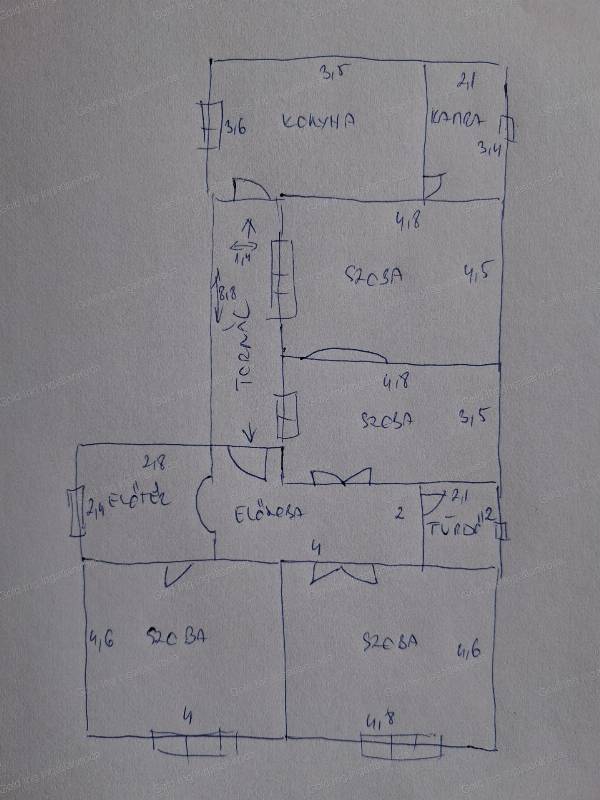 3,5
2,1
3,6
KONYHA
KAMRA
3,4
4,8
1,4
SZOBA
4,5
8,8
TORNÁC
4,8
SZOBA
3,5
2,8
2,4
ELŐTÉR
ELŐSZOBA
2
2,1
TÜRDŐ
2
4
4,6
SZOBA
SZOBA
4,6
4
4,8